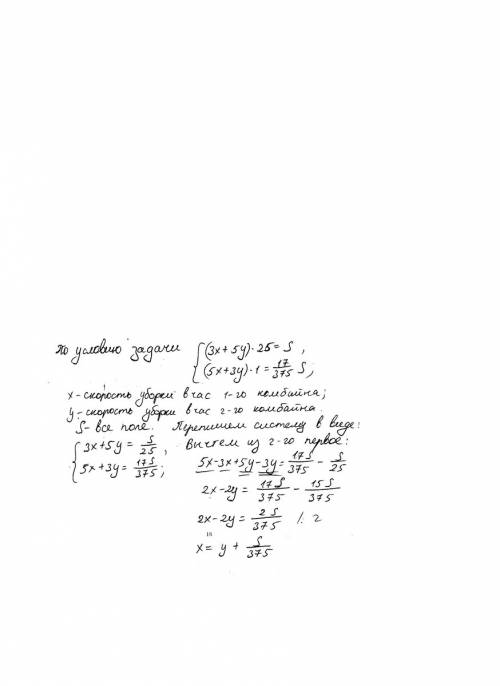 По условию задачи { (3x+5y)·25=S,
(5x+3y)·1=17/375 S,
x-скорость уборки в час 1-го комбайна;
y-скорость уборки в час 2-го комбайна.
S-все поле. Перепишем систему в виде:
{ 3x+5y=S/25, Вычтем из 2-го первое:
5x+3y=17S/375; 5x-3x+5y-3y=17S/375-S/25
2x-2y=17S/375-15S/375
2x-2y=2S/375 /:2
x=y+S/375